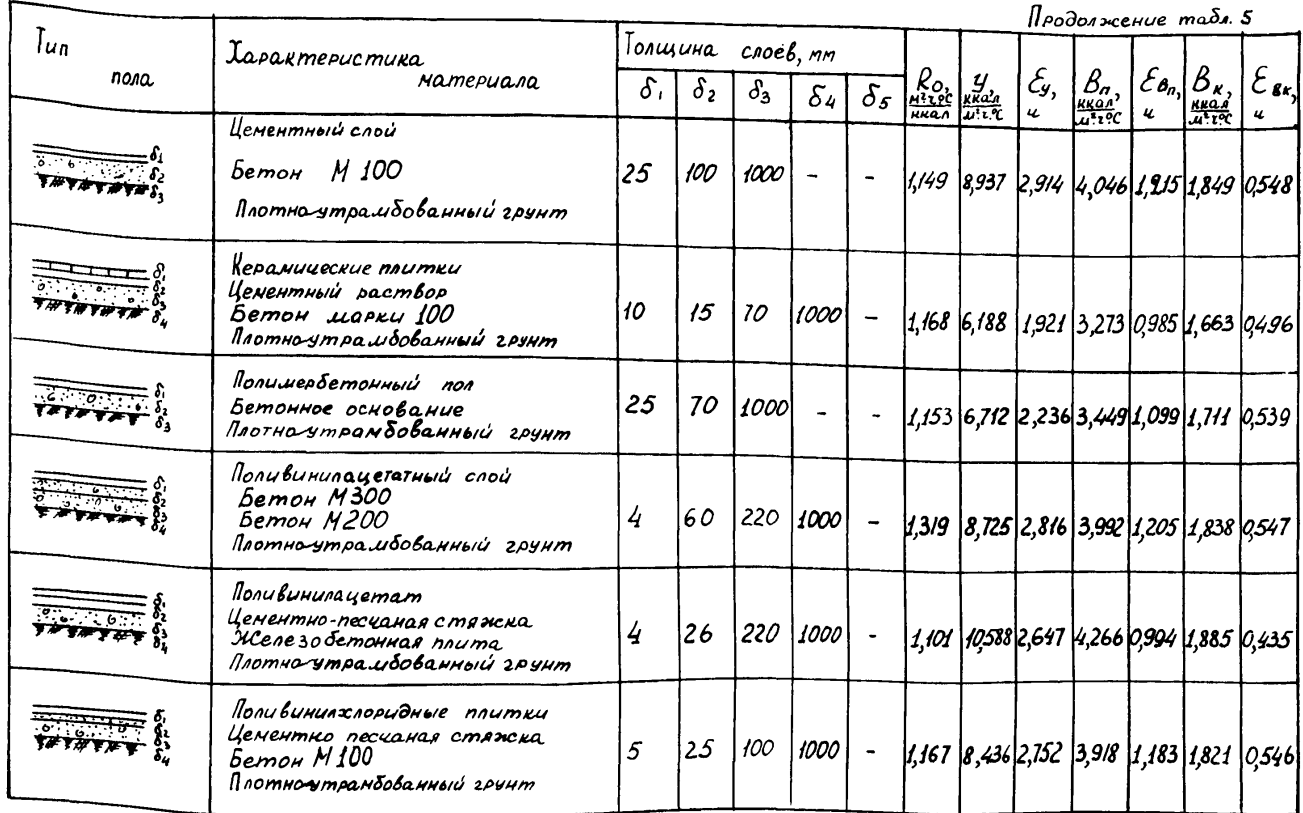 Продолжение табл. 5
Тип пола Характеристика материала Толщина слоёв, мм R₀, м²·г·°С/ккал У, ккал/м²·г·°С Ɛу, ч Вп, ккал/м²·г·°С ƐВп, ч Вк, ккал/м²·г·°С Ɛвк, ч
δ₁ δ₂ δ₃ δ₄ δ₅
δ₁
δ₂
δ₃
Цементный слой
Бетон М 100
Плотно-утрамбованный грунт
25 100 1000 – – 1,149 8,937 2,914 4,046 1,215 1,849 0,548
δ₁
δ₂
δ₃
δ₄
Керамические плитки
Цементный раствор
Бетон марки 100
Плотно-утрамбованный грунт
10 15 70 1000 – 1,168 6,188 1,921 3,273 0,985 1,663 0,496
δ₁
δ₂
δ₃
Полимербетонный пол
Бетонное основание
Плотно-утрамбованный грунт
25 70 1000 – – 1,153 6,712 2,236 3,449 1,099 1,711 0,539
δ₁
δ₂
δ₃
δ₄
Поливинилацетатный слой
Бетон М300
Бетон М200
Плотно-утрамбованный грунт
4 60 220 1000 – 1,319 8,725 2,816 3,992 1,205 1,838 0,547
δ₁
δ₂
δ₃
δ₄
Поливинилацетат
Цементно-песчаная стяжка
Железобетонная плита
Плотно-утрамбованный грунт
4 26 220 1000 – 1,101 10,588 2,647 4,266 0,994 1,885 0,435
δ₁
δ₂
δ₃
δ₄
Поливинилхлоридные плитки
Цементно песчаная стяжка
Бетон М100
Плотно-утрамбованный грунт
5 25 100 1000 – 1,167 8,436 2,752 3,918 1,183 1,821 0,546